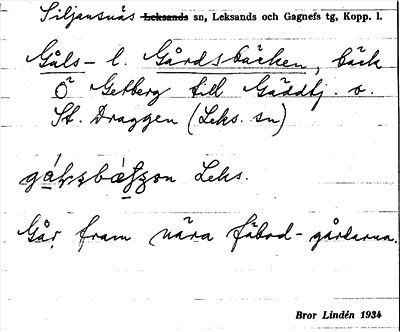 Siljansnäs Leksands sn, Leksands och Gagnefs tg, Kopp. l.
Gåls- l. Gårdsbäcken, bäck
Ö Getberg till Gäddtj. o.
St. Draggen (Leks. sn)
Leks.
Går fram nära fäbod-gårdarna.
Bror Lindén 1934